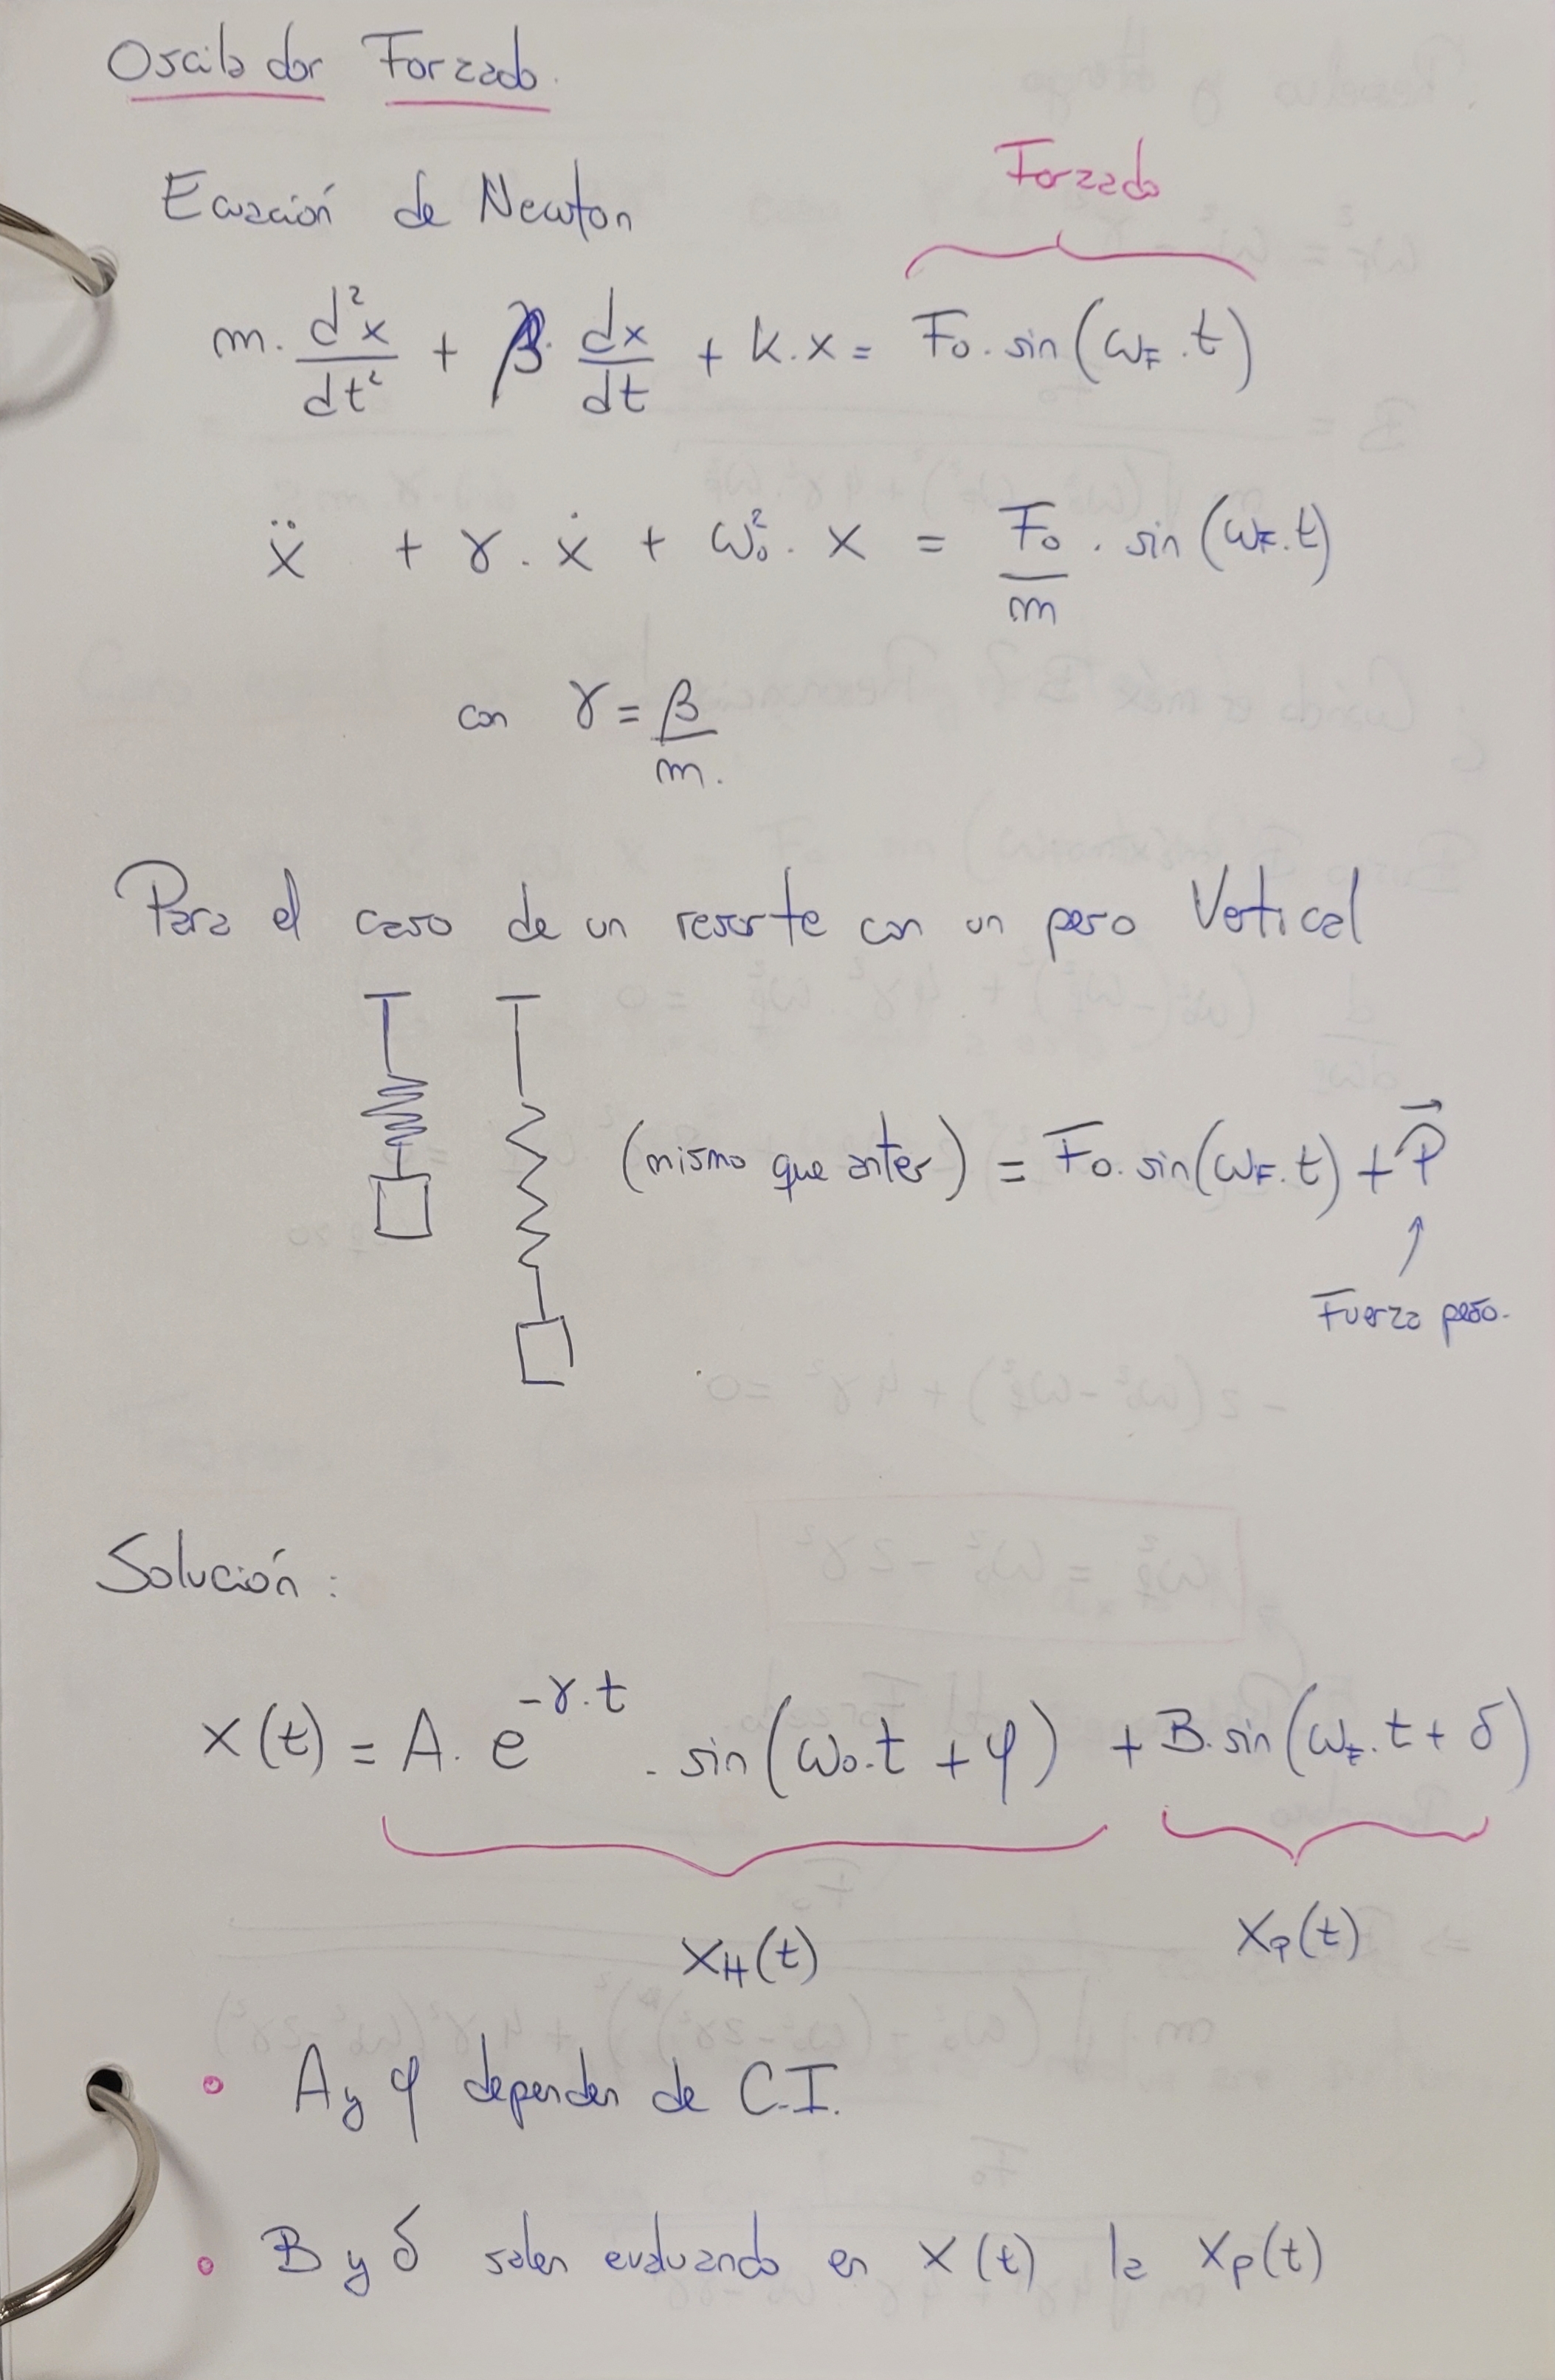 Oscilador Forzado.
Ecuación de Newton
Forzado
m. d²x/dt² + β. dx/dt + K.x = F₀. sin(ω_F.t)
ẍ + γ. ẋ + ω₀². x = F₀/m . sin(ω_F.t)
con γ = β/m.
Para el caso de un resorte con un peso Vertical
(mismo que antes) = F₀. sin(ω_F.t) + P⃗
↑
Fuerza peso.
Solución:
x(t) = A. e^(-γ.t) . sin(ω₀.t + φ) + B. sin(ω_F.t + δ)
X_H(t) X_P(t)
◦ A y φ dependen de C.I.
◦ B y δ salen evaluando en X(t) la X_P(t)